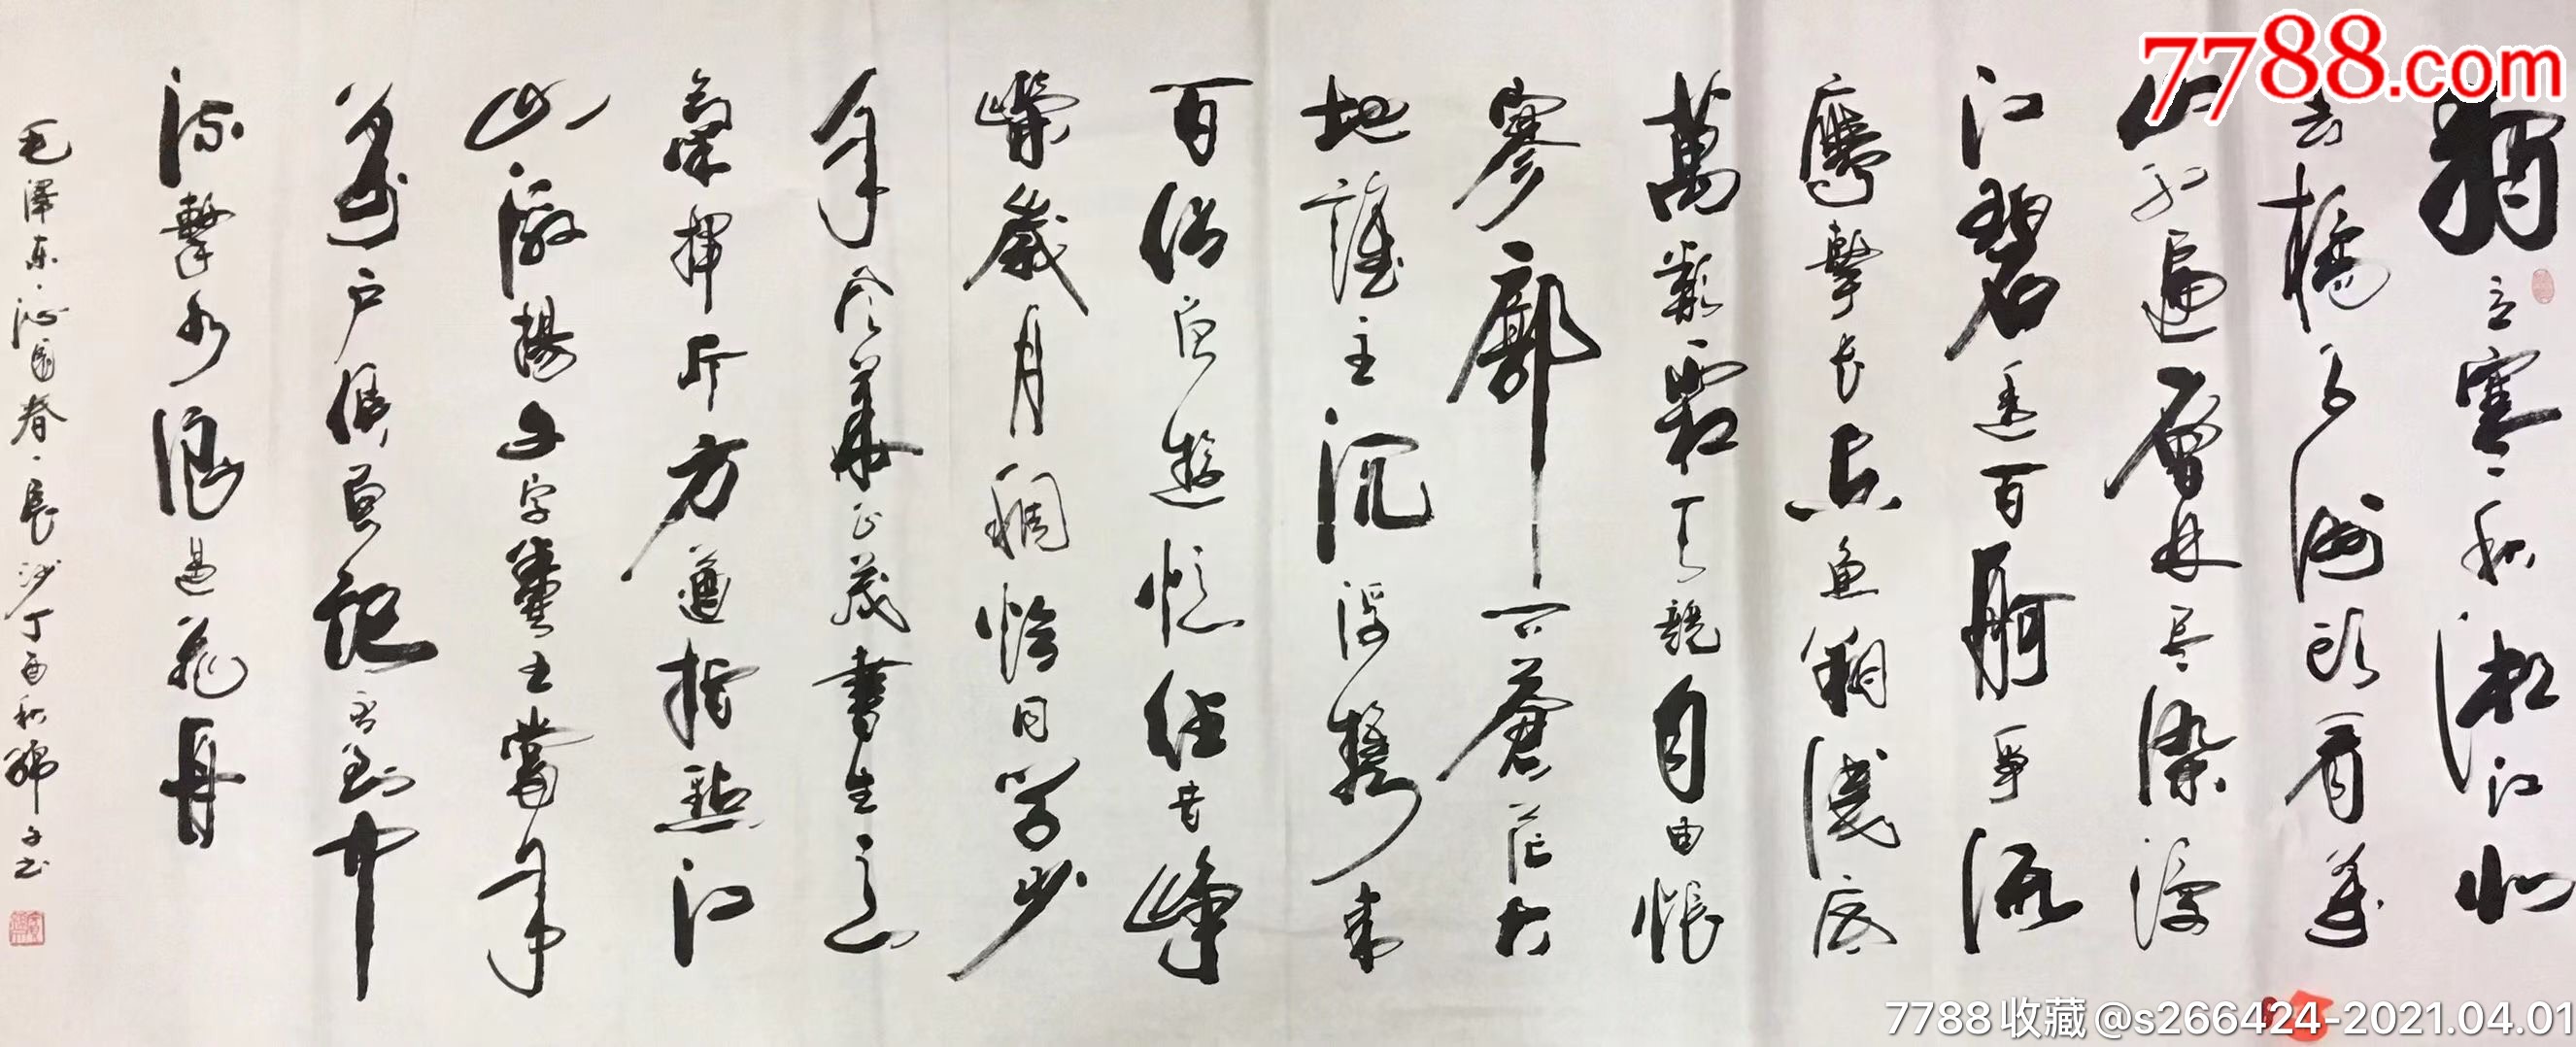 7788.com
獨立寒秋湘江北
去橘子洲头看万
山红遍层林尽染漫
江碧透百舸争流
鹰擊长空鱼翔浅底
萬類霜天競自由悵
寥廓一问蒼茫大
地誰主沉浮携来
百侣曾遊忆往昔峥
嶸歲月稠恰同学少
年风華正茂書生意
氣揮斥方遒指點江
山激揚文字糞土當年
万户侯曾記否到中
流擊水浪遏飛舟
毛澤东·沁园春·長沙丁酉秋 书
7788收藏@s266424-2021.04.01